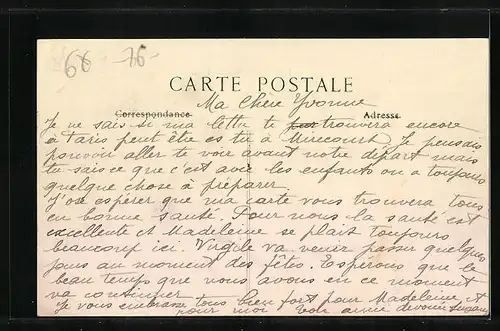 68 -76-
CARTE POSTALE
Ma Chère Yvonne
Correspondance Adresse
Je ne sais si ma lettre te trouvera encore
à Paris peut être es tu à Mirecourt. Je pensais
pouvoir aller te voir avant notre départ mais
tu sais ce que c'est avec les enfants on a toujours
quelque chose à préparer.
J'ose espérer que ma carte vous trouvera tous
en bonne santé. Pour nous la santé est
excellente et Madeleine se plait toujours
beaucoup ici. Virgile va venir passer quelques
jours au moment des fêtes. Espérons que le
beau temps que nous avons en ce moment
va continuer.
Je vous embrasse tous bien fort pour Madeleine et
pour moi Votre amie dévouée